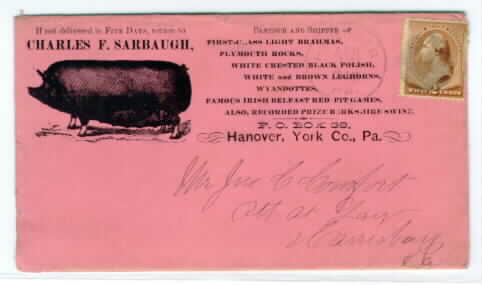 If not delivered in FIVE DAYS, return to
CHARLES F. SARBAUGH,
BREEDER AND SHIPPER OF
FIRST-CLASS LIGHT BRAHMAS,
PLYMOUTH ROCKS,
WHITE CRESTED BLACK POLISH,
WHITE and BROWN LEGHORNS,
WYANDOTTES,
FAMOUS IRISH BELFAST RED PIT GAMES,
ALSO, RECORDED PRIZE BERKSHIRE SWINE.
P. O. BOX
Hanover, York Co., Pa.
Mr Jno C Comfort
Att at Law
Harrisburg
Pa